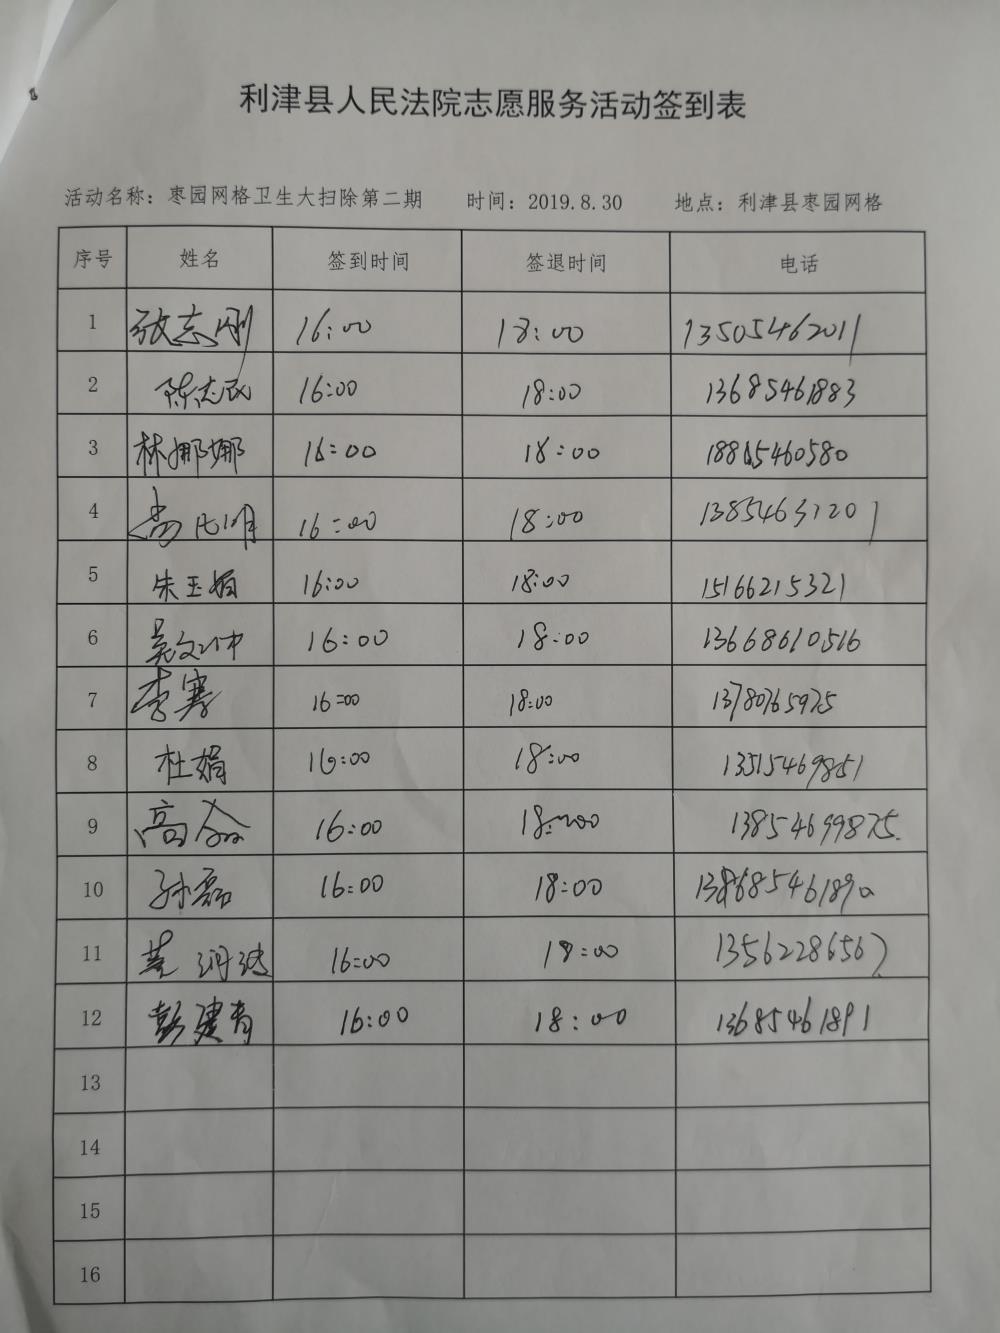 利津县人民法院志愿服务活动签到表
活动名称：枣园网格卫生大扫除第二期 时间：2019.8.30 地点：利津县枣园网格
序号 姓名 签到时间 签退时间 电话
1 张志刚 16:00 18:00 13505462011
2 陈志民 16:00 18:00 13685461883
3 林娜娜 16:00 18:00 18865460580
4 16:00 18:00 13854631201
5 朱玉娟 16:00 18:00 15166215321
6 吴文冲 16:00 18:00 13668610516
7 李骞 16:00 18:00 13780765975
8 杜娟 16:00 18:00 13515469851
9 高鑫 16:00 18:00 13854699875
10 孙磊 16:00 18:00
11 16:00 18:00 13562286567
12 彭建青 16:00 18:00 13685461891
13
14
15
16